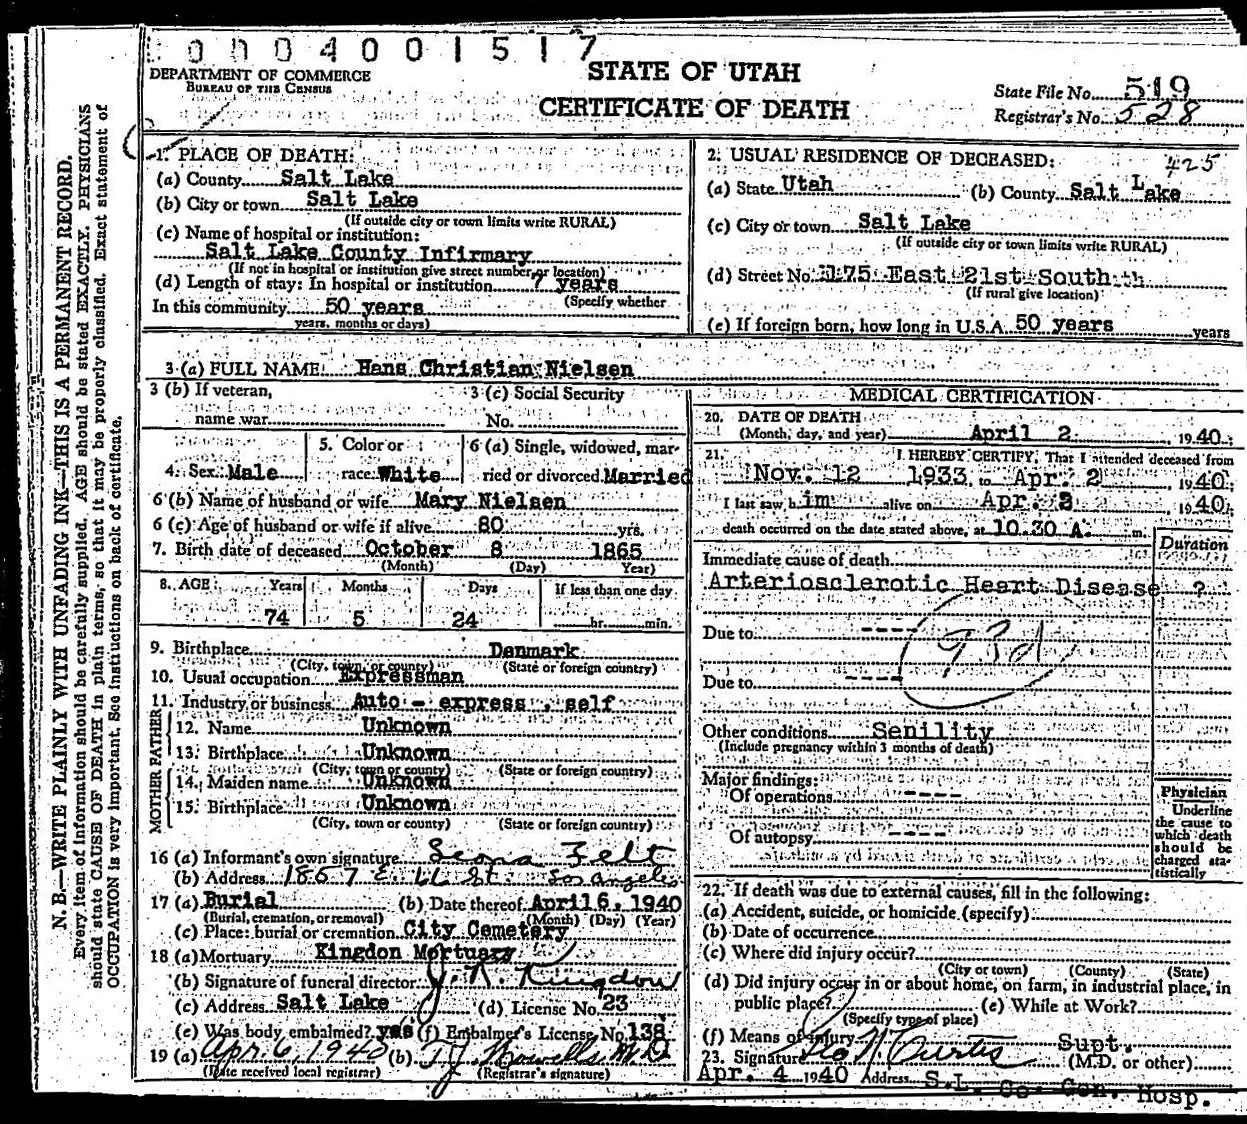 0004001517
DEPARTMENT OF COMMERCE
BUREAU OF THE CENSUS
STATE OF UTAH
CERTIFICATE OF DEATH
State File No. 519
Registrar's No. 528
N. B.—WRITE PLAINLY WITH UNFADING INK—THIS IS A PERMANENT RECORD.
Every item of information should be carefully supplied. AGE should be stated EXACTLY. PHYSICIANS
should state CAUSE OF DEATH in plain terms, so that it may be properly classified. Exact statement of
OCCUPATION is very important. See instructions on back of certificate.
1. PLACE OF DEATH:
(a) County Salt Lake
(b) City or town Salt Lake
(If outside city or town limits write RURAL)
(c) Name of hospital or institution:
Salt Lake County Infirmary
(If not in hospital or institution give street number or location)
(d) Length of stay: In hospital or institution 7 years
(Specify whether
In this community 50 years
years, months or days)
2. USUAL RESIDENCE OF DECEASED: 425
(a) State Utah (b) County Salt Lake
(c) City or town Salt Lake
(If outside city or town limits write RURAL)
(d) Street No. 175 East 21st South
(If rural give location)
(e) If foreign born, how long in U.S.A. 50 years years
3 (a) FULL NAME: Hans Christian Nielsen
3 (b) If veteran,
name war
3 (c) Social Security
No.
4. Sex Male
5. Color or
race White
6 (a) Single, widowed, mar-
ried or divorced Married
6 (b) Name of husband or wife Mary Nielsen
6 (c) Age of husband or wife if alive 80 yrs.
7. Birth date of deceased October 8 1865
(Month) (Day) Year)
8. AGE Years Months Days If less than one day
74 5 24 hr. min.
9. Birthplace Denmark
(City, town, or county) (State or foreign country)
10. Usual occupation Expressman
11. Industry or business Auto - express, self
FATHER
12. Name Unknown
13. Birthplace Unknown
(City, town or county) (State or foreign country)
MOTHER
14. Maiden name Unknown
15. Birthplace Unknown
(City, town or county) (State or foreign country)
16 (a) Informant's own signature Leona Felt
(b) Address 1857 E. 66 St. Los Angeles
17 (a) Burial (b) Date thereof April 6, 1940
(Burial, cremation, or removal) (Month) (Day) (Year)
(c) Place: burial or cremation City Cemetery
18 (a) Mortuary Kingdon Mortuary
(b) Signature of funeral director J. R. Kingdon
(c) Address Salt Lake (d) License No. 23
(e) Was body embalmed? yes (f) Embalmer's License No. 138
19 (a) Apr. 6, 1940 (b) T. J. Howells, M.D.
(Date received local registrar) (Registrar's signature)
MEDICAL CERTIFICATION
20. DATE OF DEATH
(Month, day, and year) April 2, 1940
21. I HEREBY CERTIFY, That I attended deceased from
Nov. 12 1933 to Apr. 2 1940
I last saw him alive on Apr. 2 1940
death occurred on the date stated above, at 10.30 A. m.
Duration
Immediate cause of death
Arteriosclerotic Heart Disease ?
Due to ----
93d
Due to ----
Other conditions Senility
(Include pregnancy within 3 months of death)
Major findings:
Of operations ----
Of autopsy ----
Physician
Underline
the cause to
which death
should be
charged sta-
tistically
22. If death was due to external causes, fill in the following:
(a) Accident, suicide, or homicide (specify)
(b) Date of occurrence
(c) Where did injury occur?
(City or town) (County) (State)
(d) Did injury occur in or about home, on farm, in industrial place, in
public place? (e) While at Work?
(Specify type of place)
(f) Means of injury
23. Signature Geo N. Curtis Supt.
(M.D. or other)
Apr. 4 1940 Address S.L. Co Gen. Hosp.